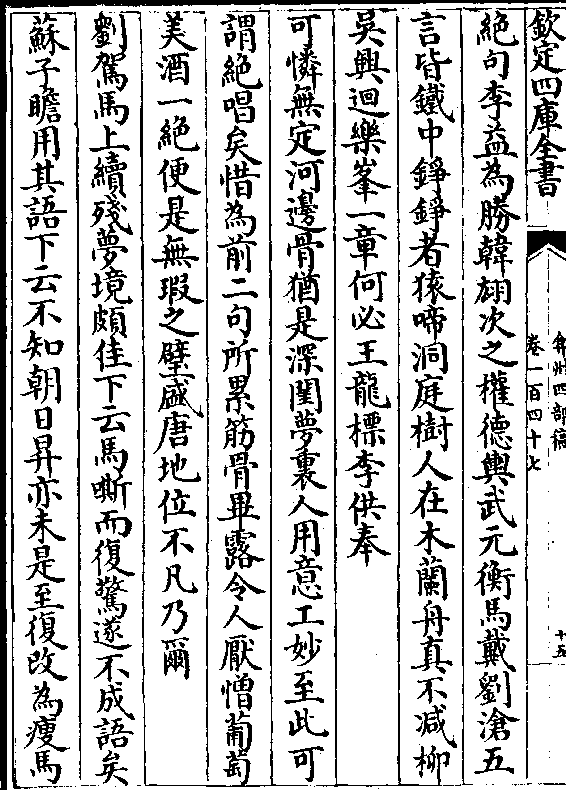 欽定四庫全書
弇州四部稿
卷一百四十七
十五
絶句李益為勝韓翃次之權德輿武元衡馬戴劉滄五
言皆鐵中錚錚者猿啼洞庭樹人在木蘭舟真不減柳
吳興迴樂峯一章何必王龍標李供奉
可憐無定河邊骨猶是深閨夢裏人用意工妙至此可
謂絶唱矣惜為前二句所累筋骨畢露令人厭憎葡萄
美酒一絶便是無瑕之璧盛唐地位不凡乃爾
劉駕馬上續殘夢境頗佳下云馬嘶而復驚遂不成語矣
蘇子瞻用其語下云不知朝日昇亦未是至復改為瘦馬